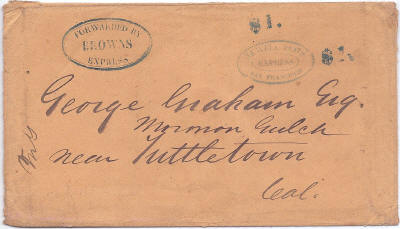 FORWARDED BY
BROWNS
EXPRESS
$1.
$1.
EXPRESS
SAN FRANCISCO
George Graham Esq.
Mormon Gulch
near Tuttletown
Cal.